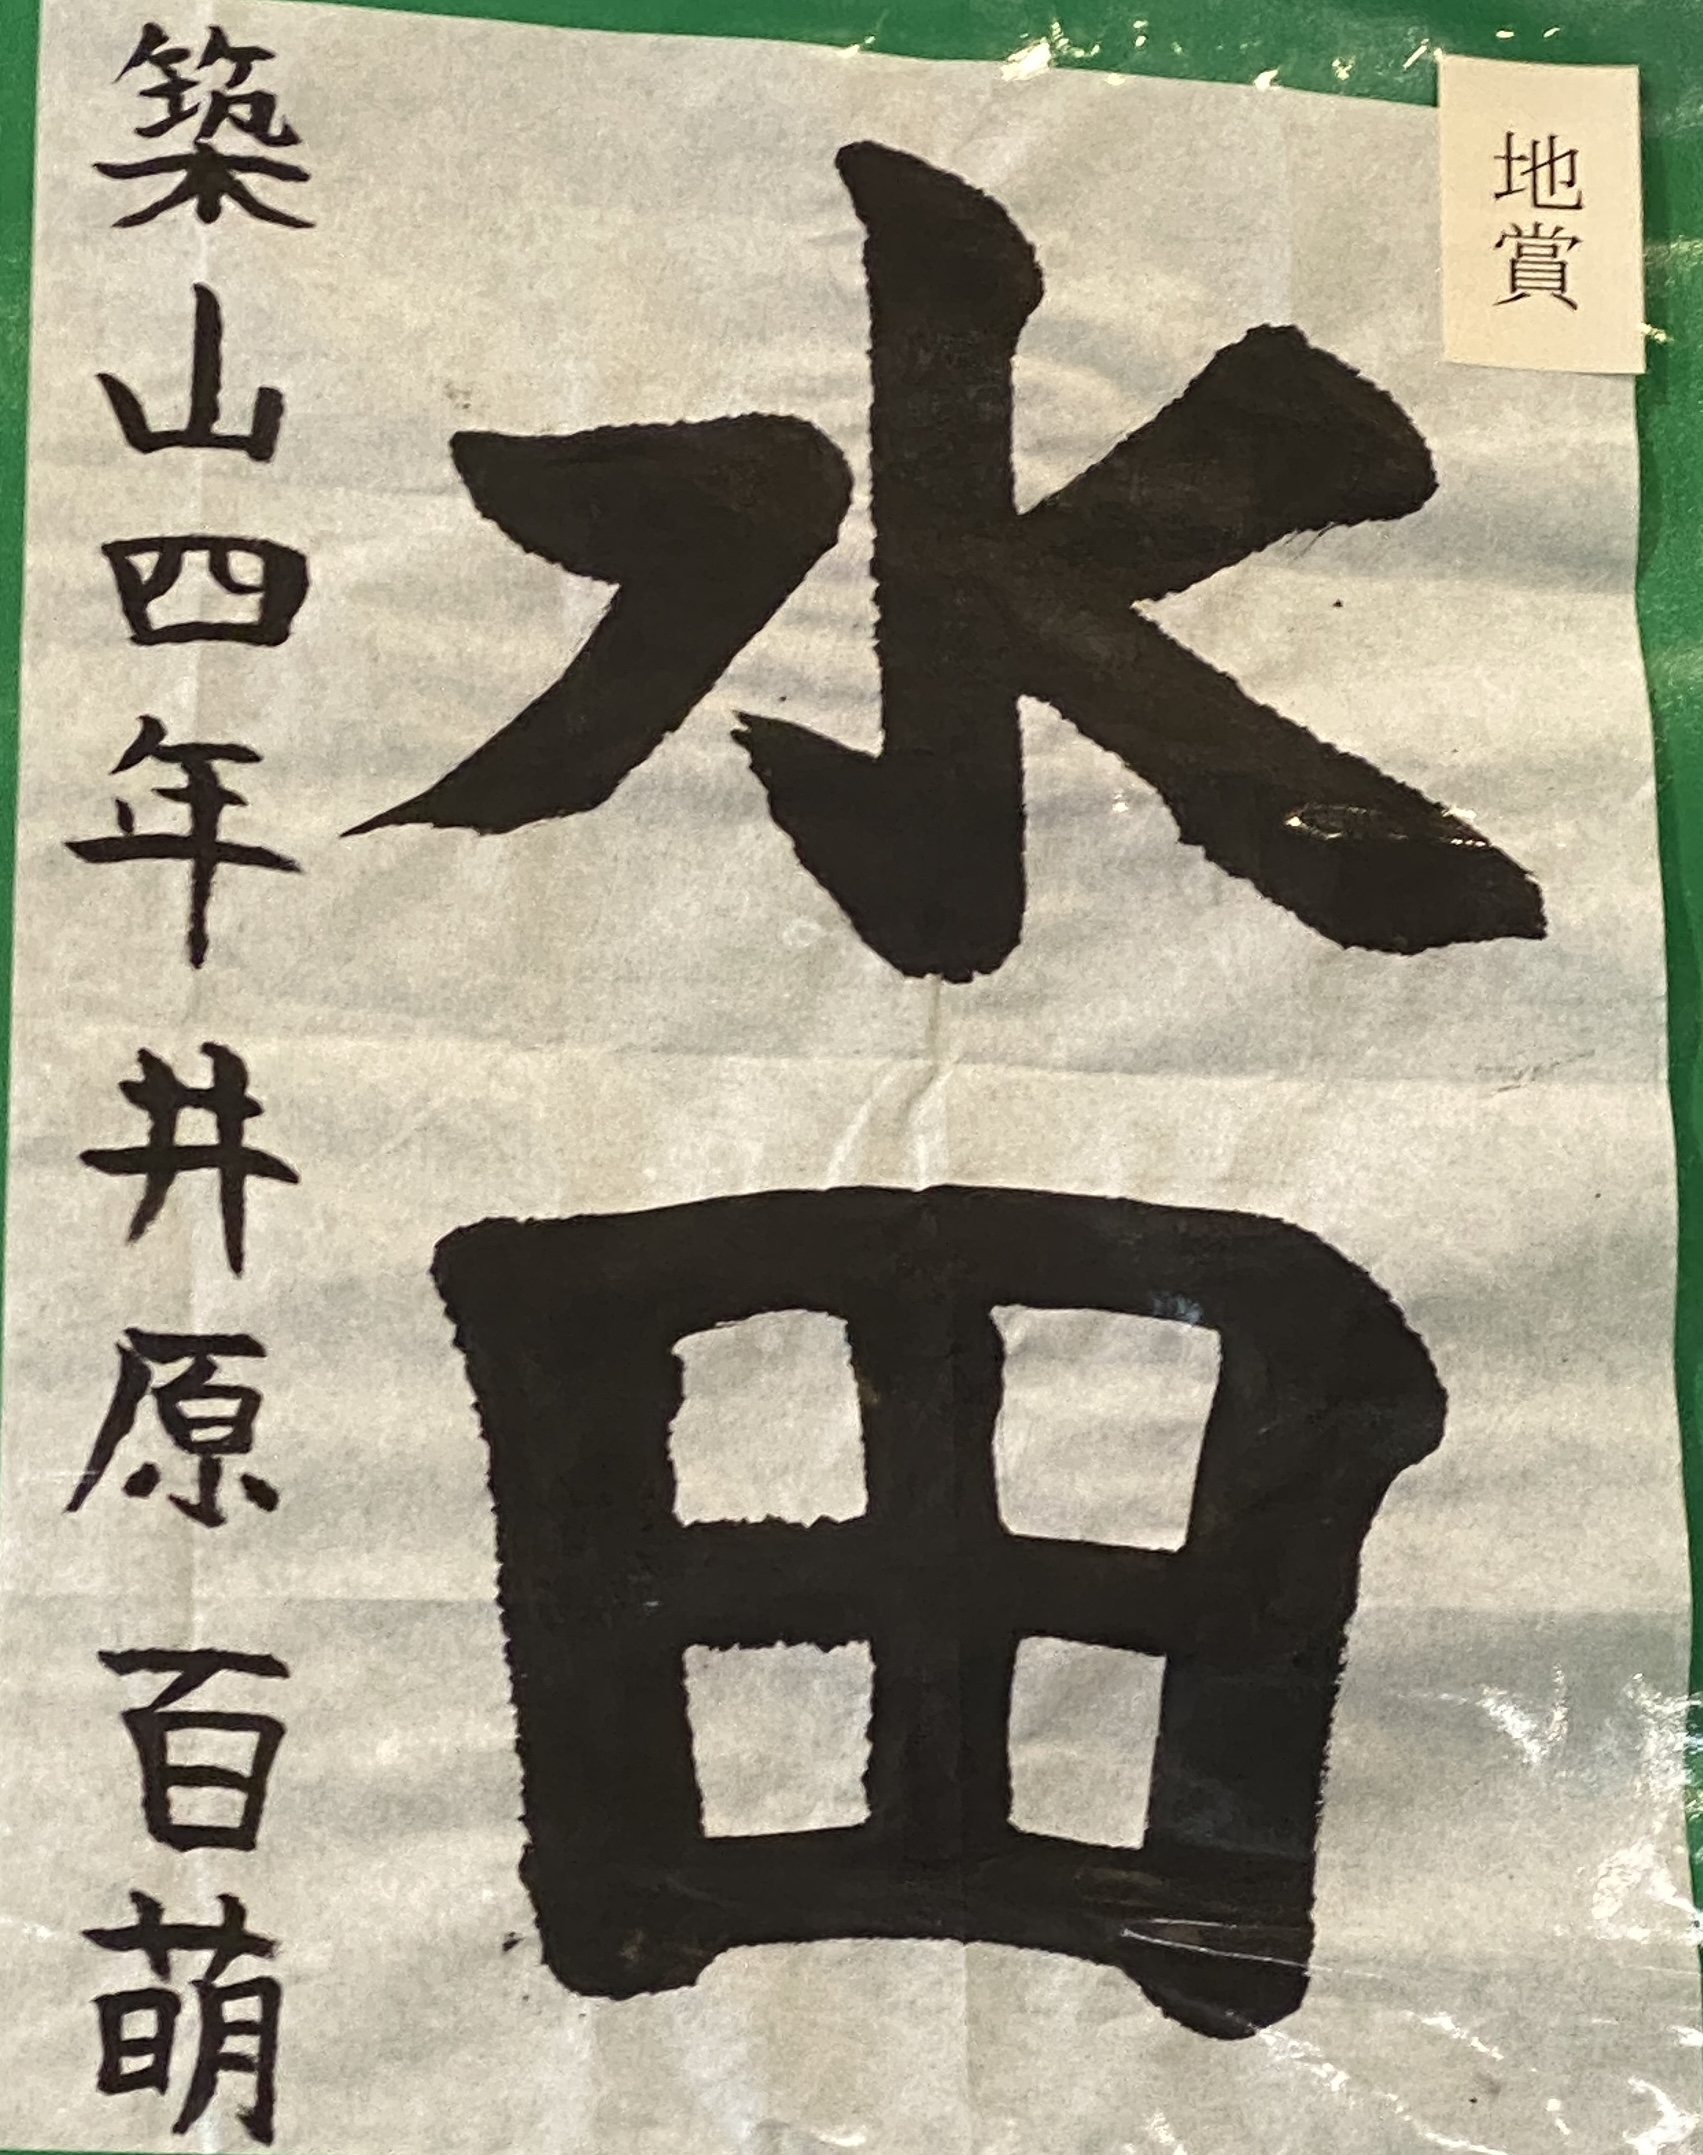 地賞
水田
築山四年井原百萌